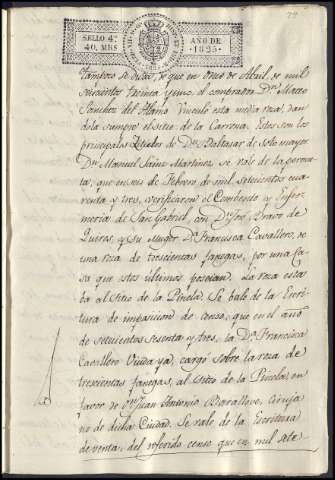 79
SELLO 4º AÑO DE
40. MRS 1825
tambien se duda, de que en Onze de Abril, se mil
seiscientos treinta y uno el comprador Dn. Mateo
Sanchez del Alamo Vinculó esta media roza, dan
dola siempre el sitio de la Carrera. Estos son los
principales Titulos de Dn. Baltasar de Sotomayor
Dn. Manuel Sainz Martinez, se vale de la permu
ta, que en mes de Febrero de mil setecientos cua
renta y tres, verificaron el Combento y Enfer
meria de San Gabriel, con Dn. Jose Bravo de
Quiros, y su Muger Dª Francisca Cavallero, de
una roza de trescientas fanegas, por una Ca
sa que estos ultimos poseian. La roza esta
ba al Sitio de la Pinela. Se bale de la Escri
tura de imposicion de censo, que en el año
de setecientos sesenta y tres, la Dª Francisca
Cavallero Viuda ya, cargó sobre la roza de
trescientas fanegas, al Sitio de la Pinela, en
favor de Dn. Juan Antonio Barallave, ciruja
no de dicha Ciudad. Se vale de la Escritura
de venta, del referido censo que en mil sete